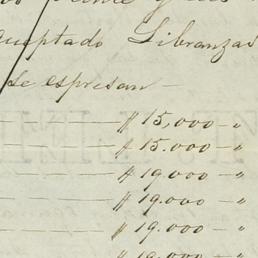 aceptado Libranzas
se espresan
$ 15,000 - "
$ 15.000 - "
$ 19.000 - "
$ 19.000 - "
$ 19.000 - "
$ 19.000 - "